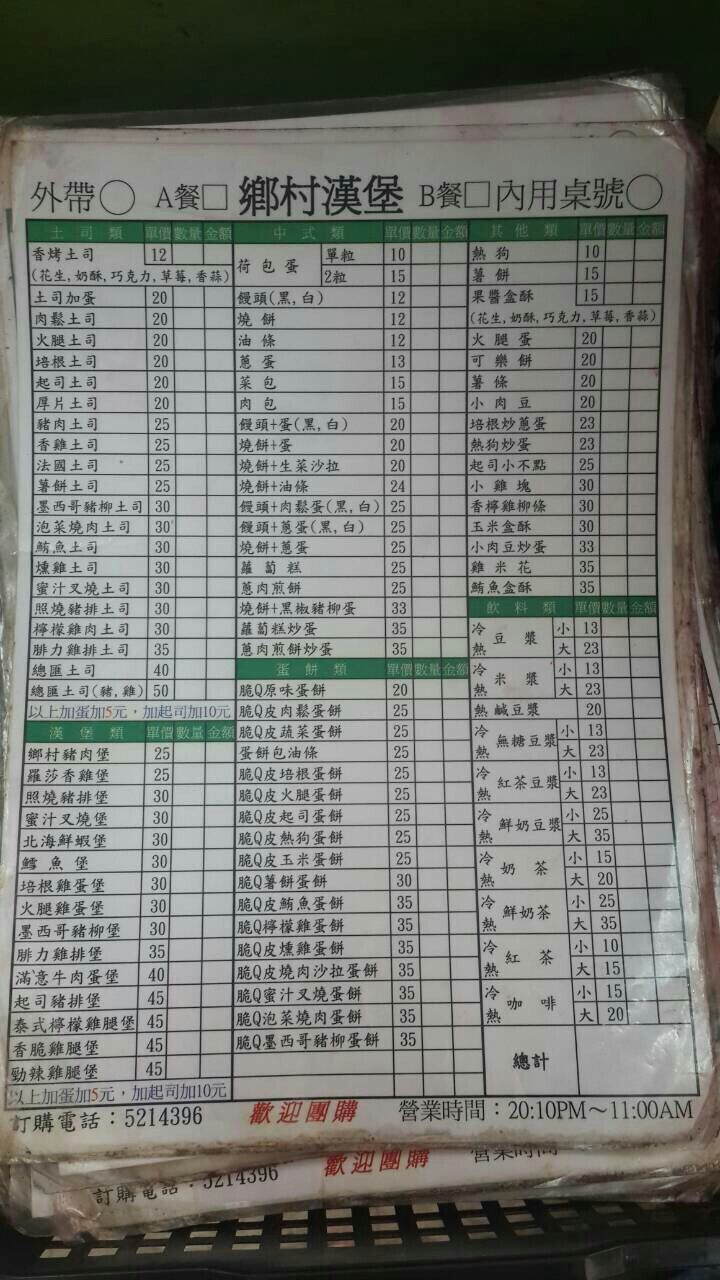 外帶○ A餐□ 鄉村漢堡 B餐□ 內用桌號○
土司類 單價 數量 金額
香烤土司 12
(花生,奶酥,巧克力,草莓,香蒜)
土司加蛋 20
肉鬆土司 20
火腿土司 20
培根土司 20
起司土司 20
厚片土司 20
豬肉土司 25
香雞土司 25
法國土司 25
薯餅土司 25
墨西哥豬柳土司 30
泡菜燒肉土司 30
鮪魚土司 30
燻雞土司 30
蜜汁叉燒土司 30
照燒豬排土司 30
檸檬雞肉土司 30
腓力雞排土司 35
總匯土司 40
總匯土司(豬,雞) 50
以上加蛋加5元,加起司加10元
漢堡類 單價 數量 金額
鄉村豬肉堡 25
羅莎香雞堡 25
照燒豬排堡 30
蜜汁叉燒堡 30
北海鮮蝦堡 30
鱈魚堡 30
培根雞蛋堡 30
火腿雞蛋堡 30
墨西哥豬柳堡 30
腓力雞排堡 35
滿意牛肉蛋堡 40
起司豬排堡 45
泰式檸檬雞腿堡 45
香脆雞腿堡 45
勁辣雞腿堡 45
以上加蛋加5元,加起司加10元
中式類 單價 數量 金額
荷包蛋 單粒 10
2粒 15
饅頭(黑,白) 12
燒餅 12
油條 12
蔥蛋 13
菜包 15
肉包 15
饅頭+蛋(黑,白) 20
燒餅+蛋 20
燒餅+生菜沙拉 20
燒餅+油條 24
饅頭+肉鬆蛋(黑,白) 25
饅頭+蔥蛋(黑,白) 25
燒餅+蔥蛋 25
蘿蔔糕 25
蔥肉煎餅 25
燒餅+黑椒豬柳蛋 33
蘿蔔糕炒蛋 35
蔥肉煎餅炒蛋 35
蛋餅類 單價 數量 金額
脆Q原味蛋餅 20
脆Q皮肉鬆蛋餅 25
脆Q皮蔬菜蛋餅 25
蛋餅包油條 25
脆Q皮培根蛋餅 25
脆Q皮火腿蛋餅 25
脆Q皮起司蛋餅 25
脆Q皮熱狗蛋餅 25
脆Q皮玉米蛋餅 25
脆Q薯餅蛋餅 30
脆Q皮鮪魚蛋餅 35
脆Q檸檬雞蛋餅 35
脆Q皮燻雞蛋餅 35
脆Q皮燒肉沙拉蛋餅 35
脆Q蜜汁叉燒蛋餅 35
脆Q泡菜燒肉蛋餅 35
脆Q墨西哥豬柳蛋餅 35
其他類 單價 數量 金額
熱狗 10
薯餅 15
果醬盒酥 15
(花生,奶酥,巧克力,草莓,香蒜)
火腿蛋 20
可樂餅 20
薯條 20
小肉豆 20
培根炒蔥蛋 23
熱狗炒蛋 23
起司小不點 25
小雞塊 30
香檸雞柳條 30
玉米盒酥 30
小肉豆炒蛋 33
雞米花 35
鮪魚盒酥 35
飲料類 單價 數量 金額
冷 熱 豆漿 小 13
大 23
冷 熱 米漿 小 13
大 23
熱 鹹豆漿 20
冷 熱 無糖豆漿 小 13
大 23
冷 熱 紅茶豆漿 小 13
大 23
冷 熱 鮮奶豆漿 小 25
大 35
冷 熱 奶茶 小 15
大 20
冷 熱 鮮奶茶 小 25
大 35
冷 熱 紅茶 小 10
大 15
冷 熱 咖啡 小 15
大 20
總計
訂購電話:5214396 歡迎團購 營業時間:20:10PM~11:00AM
訂購電話:5214396 歡迎團購 營業時間